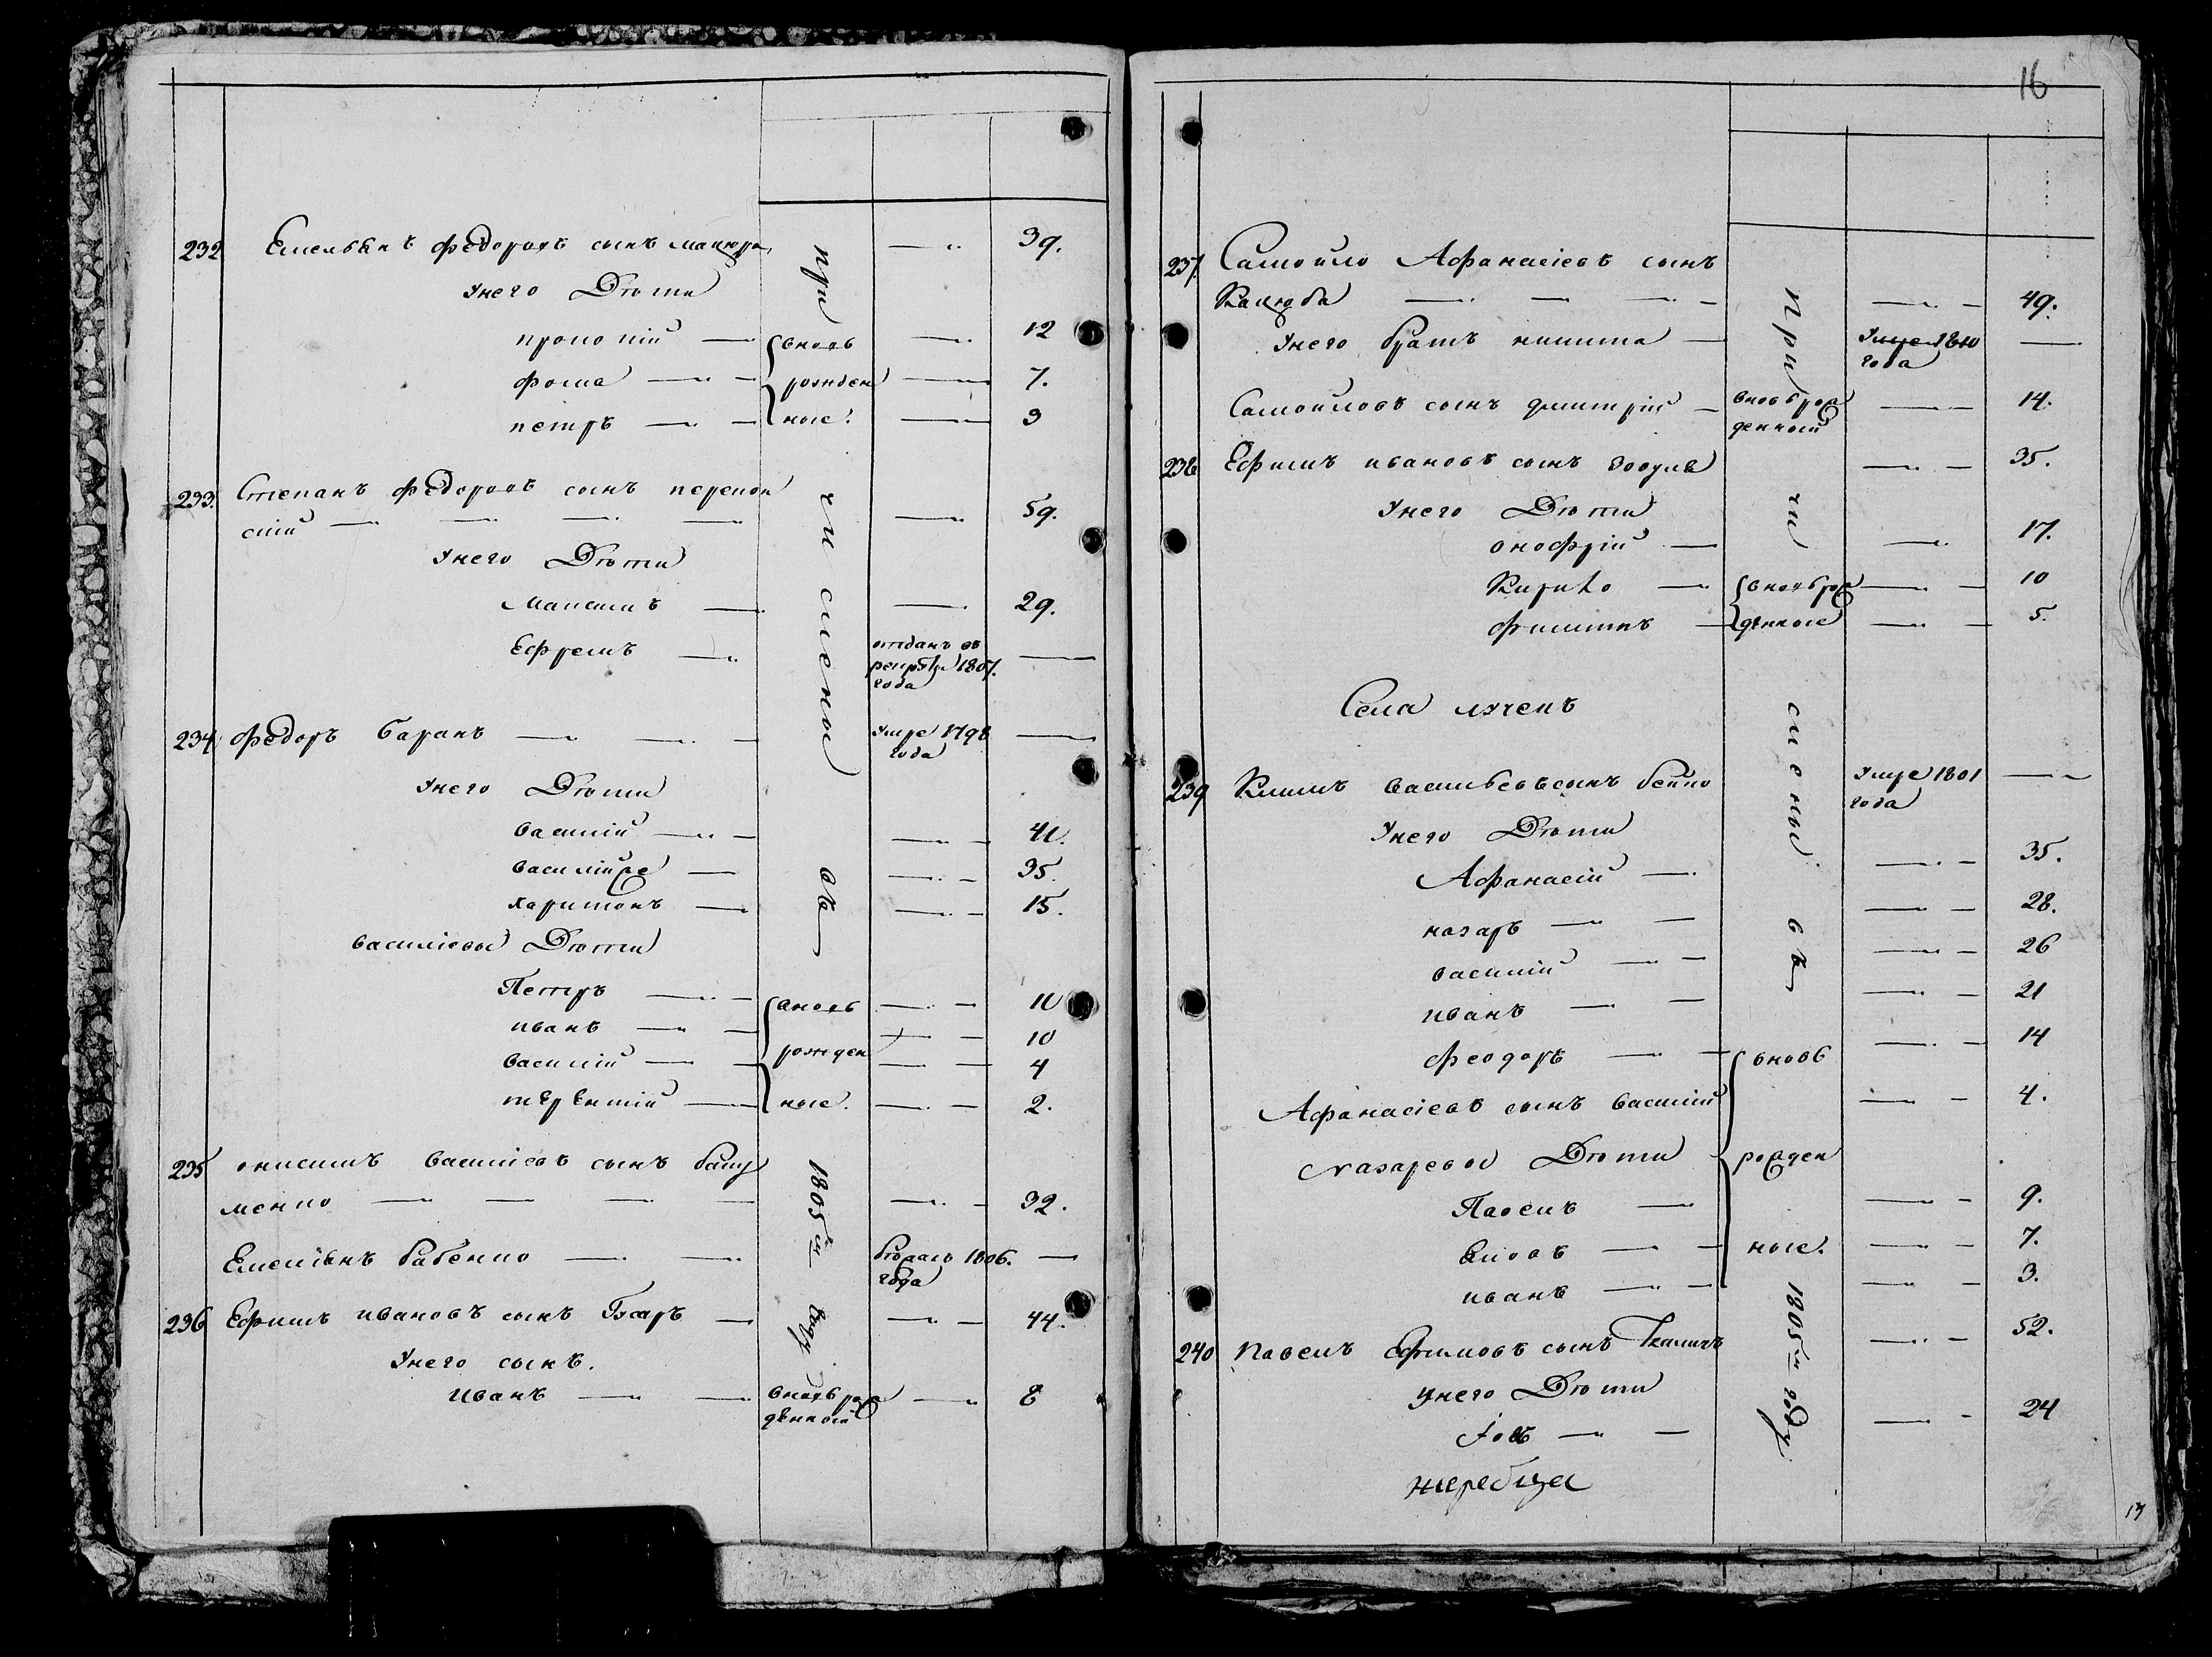 232 Емельянъ федоровъ сынъ мацюра — 39.
У него Дѣти
прокопій — вновь — 12
фома — рожден — 7.
петръ — ные. — 3
233. Степанъ федоровъ сынъ перекоп
скій — 59.
У него Дѣти
Максимъ — 29.
Ефремъ — отданъ въ рекруты 1807. года —
234 федоръ Баранъ — умре 1798 года —
У него Дѣти
василій — 41.
василій же — 35.
харитонъ — 15.
василіевы Дѣти
Петръ — вновь — 11
иванъ — 10
василій — рожден — 4
терентій — ные. — 2.
235 онисимъ василіевъ сынъ баку
менко — 32.
Емеліянъ бабенко — бѣжалъ 1806. года —
236 Ефимъ ивановъ сынъ Гусаръ — 44.
У него сынъ.
иванъ — вновь рож денный — 8
при численые въ 1805м году
16
237. Самойло Афанасіевъ сынъ
Кацюба — 49.
У него братъ никита — умре 1810 года —
Самойловъ сынъ дмитрій — вновь рож денный — 14.
238 Ефимъ ивановъ сынъ — 35.
У него Дѣти
онофрій — 17.
Кирило — вновь рож — 10
филипъ — денные — 5.
Села лучекъ
239 Климъ васильевъ сынъ бейко — умре 1801 года —
У него Дѣти
Афанасій — 35.
назаръ — 28.
василій — 26
иванъ — 21
феодоръ — вновь — 14
Афанасіевъ сынъ василій — 4.
назаревы Дѣти — рожден
Павелъ — 9.
яковъ — ные. — 7.
иванъ — 3.
240 павелъ Ефимовъ сынъ Ткачъ — 52.
У него Дѣти
Іовъ — 24
при чи сленый въ 1805м году
жеребца
17